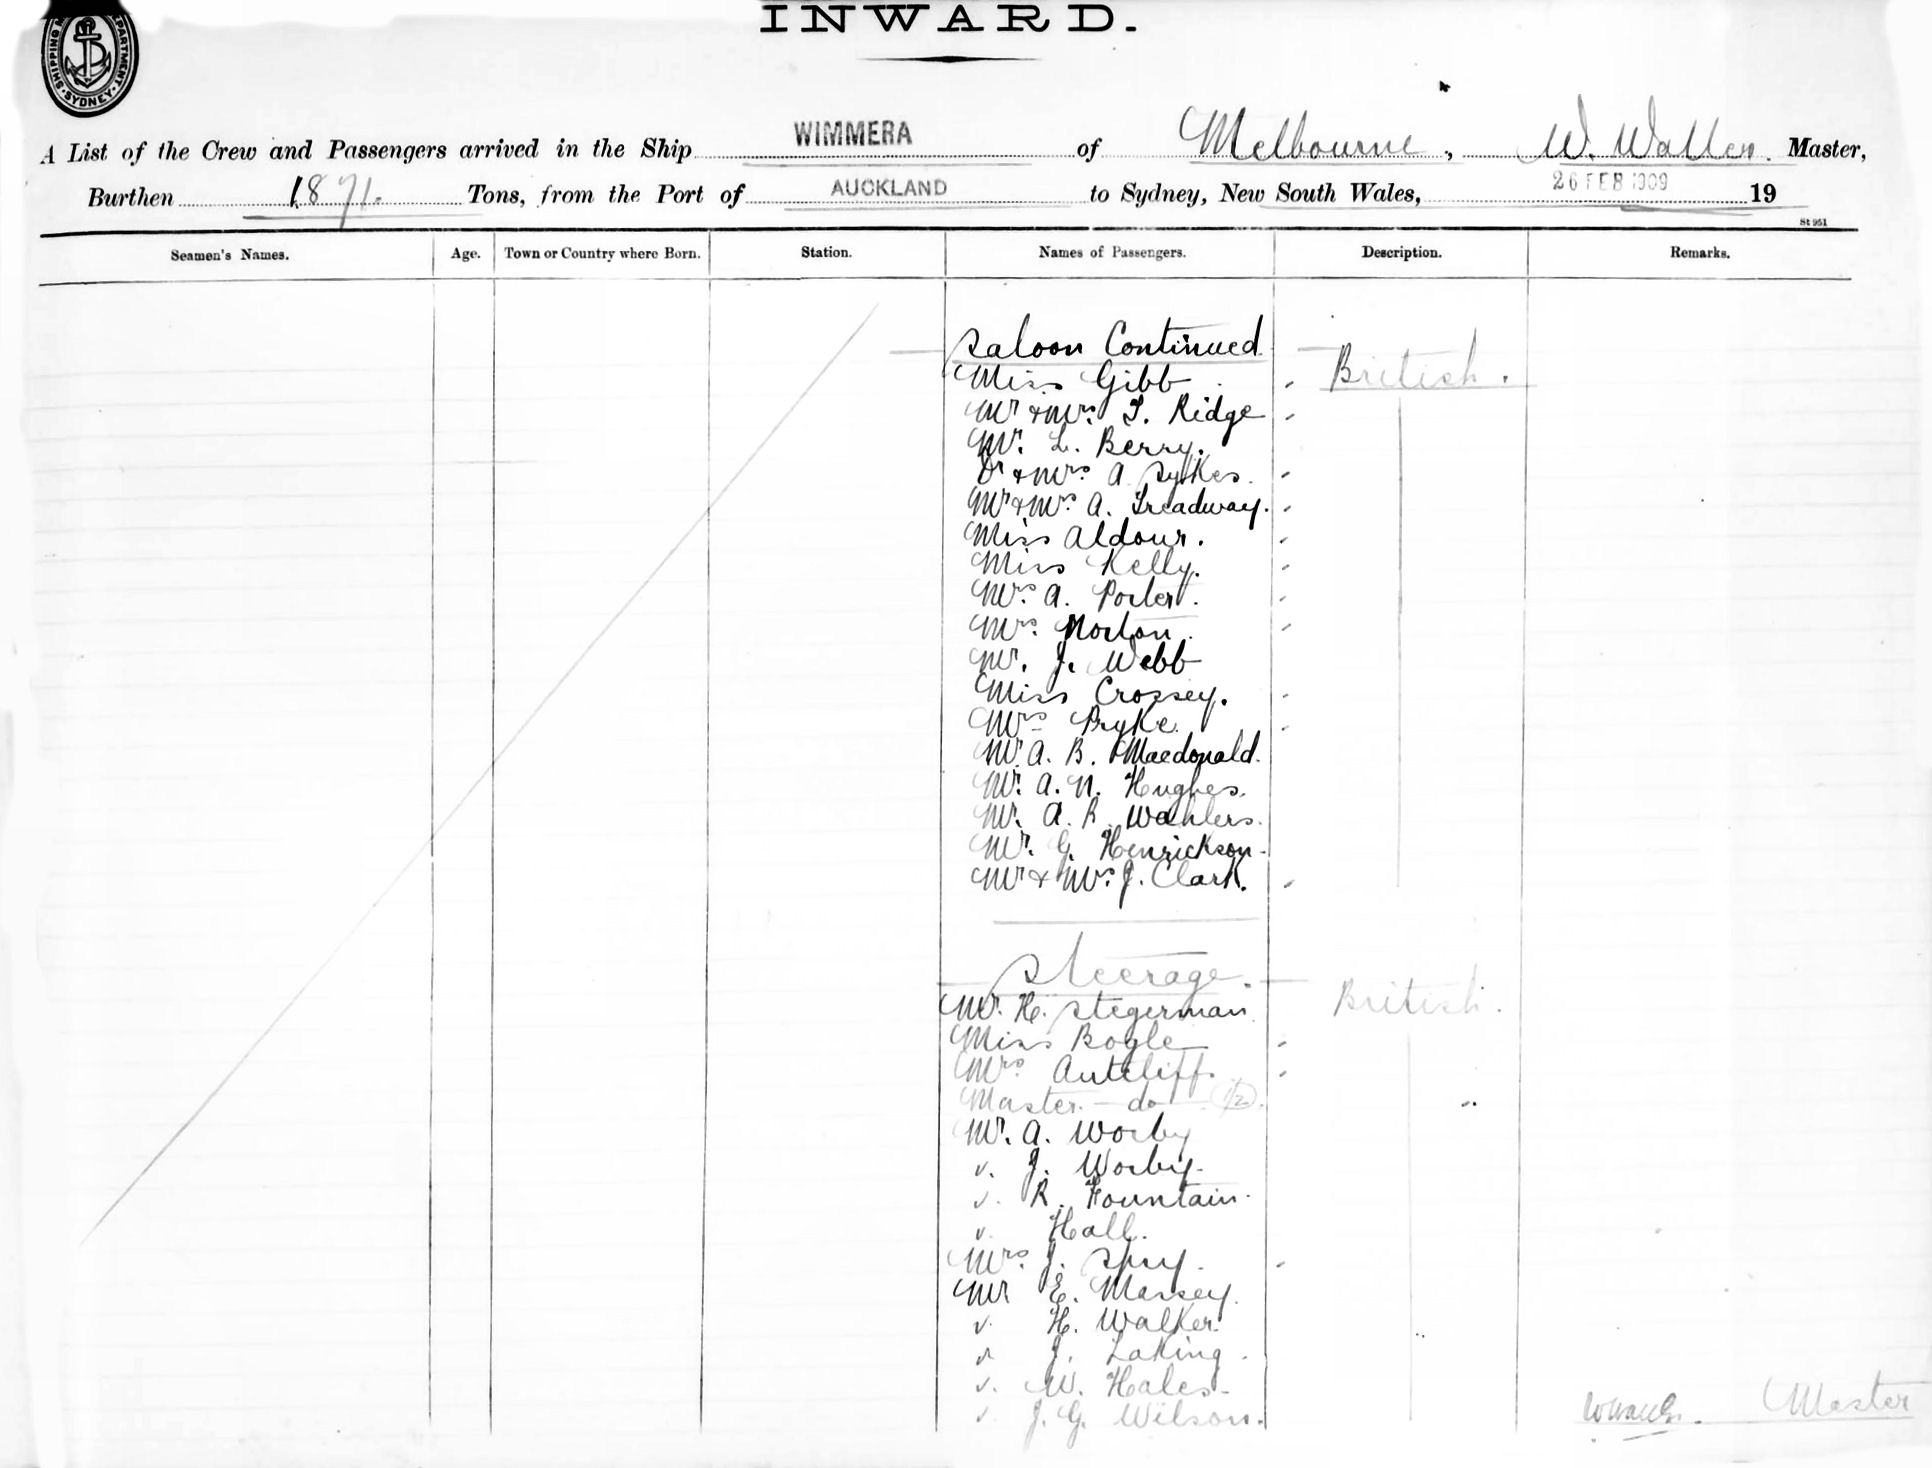 INWARD.
SHIPPING DEPARTMENT SYDNEY
A List of the Crew and Passengers arrived in the Ship WIMMERA of Melbourne, W. Waller. Master,
Burthen 1871. Tons, from the Port of AUCKLAND to Sydney, New South Wales, 26 FEB 1909 19
St 951
Seamen's Names. Age. Town or Country where Born. Station. Names of Passengers. Description. Remarks.
Saloon Continued
Miss Gibb British.
Mr & Mrs. T. Ridge
Mr. L. Berry.
Dr & Mrs. A Sykes.
Mr & Mrs. A. Treadway.
Miss Aldour.
Miss Kelly.
Mrs. A. Porter.
Mrs. Norton.
Mr. J. Webb
Miss Crossey.
Mrs Pryke.
Mr. A. B. Macdonald.
Mr. A. N. Hughes.
Mr. A. R. Wahlers.
Mr. G. Henrickson.
Mr & Mrs. J. Clark.
Steerage.
Mr. H. Stegerman British.
Miss Bogle
Mrs. Autcliff.
Master do 1/2.
Mr. A. Worby
v. J. Worby.
v. R. Fountain.
v. Hall.
Mrs. J. Spry.
Mr E. Massey.
v. H. Walker.
v J. Laking.
v. W. Hales.
v. J. G. Wilson.
Master